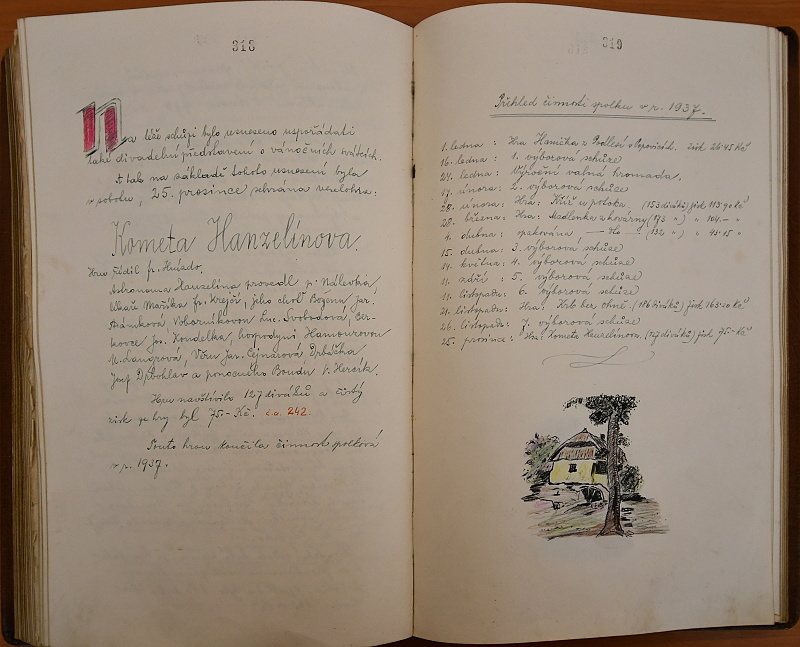 318
Na této schůzi bylo usneseno uspořádati
také divadelní představení o vánočních svátcích.
A tak na základě tohoto usnesení byla
v sobotu, 25. prosince sehrána veselohra:
Kometa Hanzelínova.
Hru řídil fr. Hnízdo.
Astronoma Hanzelína provedl p. Nálevka,
lékaře Maříka fr. Krejčí, jeho choť Boženu Jar.
Adámková, Voborníkovou Lud. Svobodová, Ber-
kovce Jos. Koudelka, hospodyni Hamourovou
M. Langrová, Věru Jar. Cejnarová, Drbóška
Josef Drbohlav a ponocného Bondu V. Herčík.
Hru navštívilo 127 diváků a čistý
zisk ze hry byl 75.- Kč. č.a. 242.
Touto hrou končila činnost spolková
v r. 1937.
319
Přehled činnosti spolku v r. 1937.
1. ledna : Hra Hanička z Podlesí v Popovicích. zisk 26·45 Kč
16. ledna : 1. výborová schůze
24. ledna : Výroční valná hromada.
17. února : 2. výborová schůze
28. února : Hra: Kříž u potoka. (153 diváků) zisk 113·90 Kč
28. března : Hra: Madlenka z kovárny (173 " ) " 104.- "
4. dubna : opakována — " — (132 " ) " 45·15 "
15. dubna : 3. výborová schůze
14. května : 4. výborová schůze
11. září : 5. výborová schůze
11. listopadu : 6. výborová schůze
21. listopadu : Hra: Hrb bez ohně. (176 diváků) zisk 163·20 Kč
26. listopadu : 7. výborová schůze
25. prosince : Hra: Kometa Hanzelínova. (127 diváků) zisk 75.- Kč